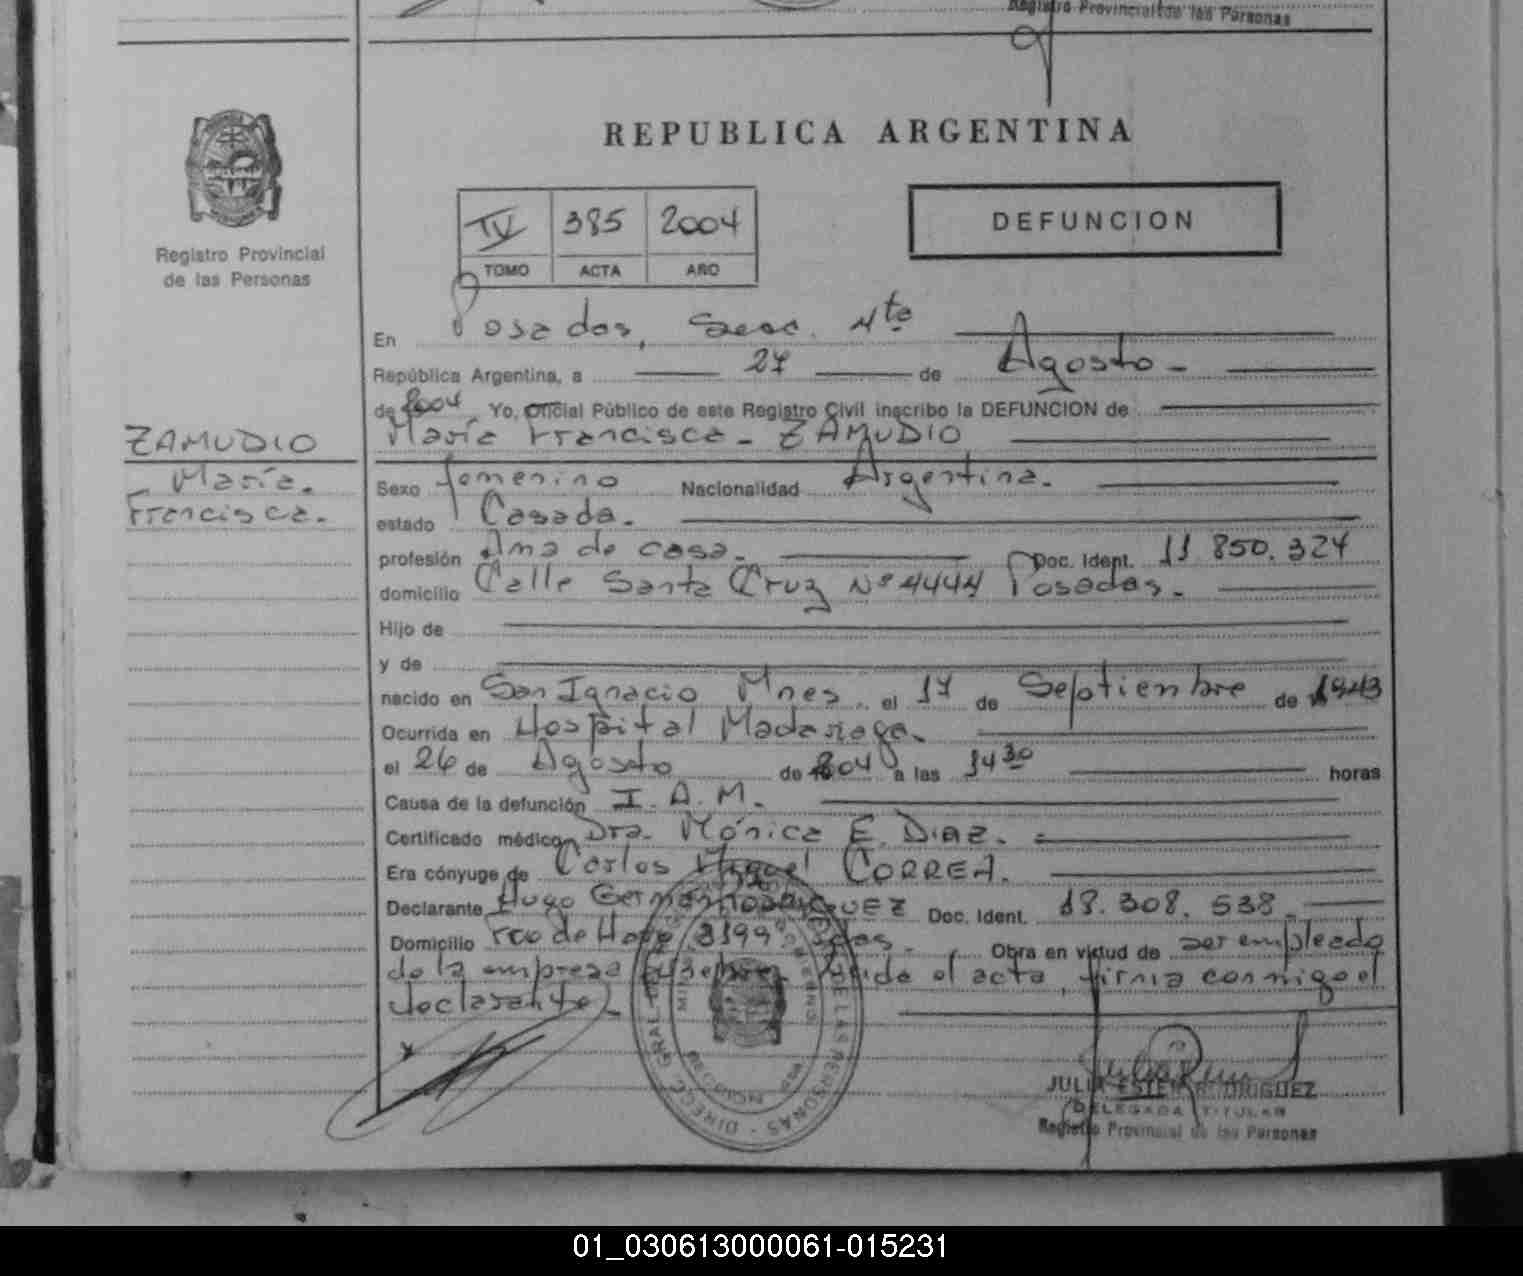 Registro Provincial de las Personas
REPUBLICA ARGENTINA
Registro Provincial
de las Personas
IV 385 2004
TOMO ACTA AÑO
DEFUNCION
En Posadas, Secc. 4ta
República Argentina, a 27 de Agosto -
de 2004, Yo, Oficial Público de este Registro Civil inscribo la DEFUNCION de
ZAMUDIO
María.
Francisca.
María Francisca - ZAMUDIO
Sexo femenino Nacionalidad Argentina.
estado Casada.
profesión Ama de casa. Doc. Ident. 11.850.324
domicilio Calle Santa Cruz Nº 4444 Posadas.
Hijo de
y de
nacido en San Ignacio Mnes, el 17 de Septiembre de 1943
Ocurrida en Hospital Madariaga.
el 26 de Agosto de 2004 a las 14 30 horas
Causa de la defunción I. A. M.
Certificado médico Dra. Mónica E. Diaz.
Era cónyuge de Carlos Miguel CORREA.
Declarante Hugo Germán Doc. Ident. 18.308.538
Domicilio 3199 Obra en virtud de ser empleado
de la empresa Leída el acta, firma conmigo el
declarante.
JULIA ESTER RODRIGUEZ
DELEGADA TITULAR
Registro Provincial de las Personas
01_030613000061-015231